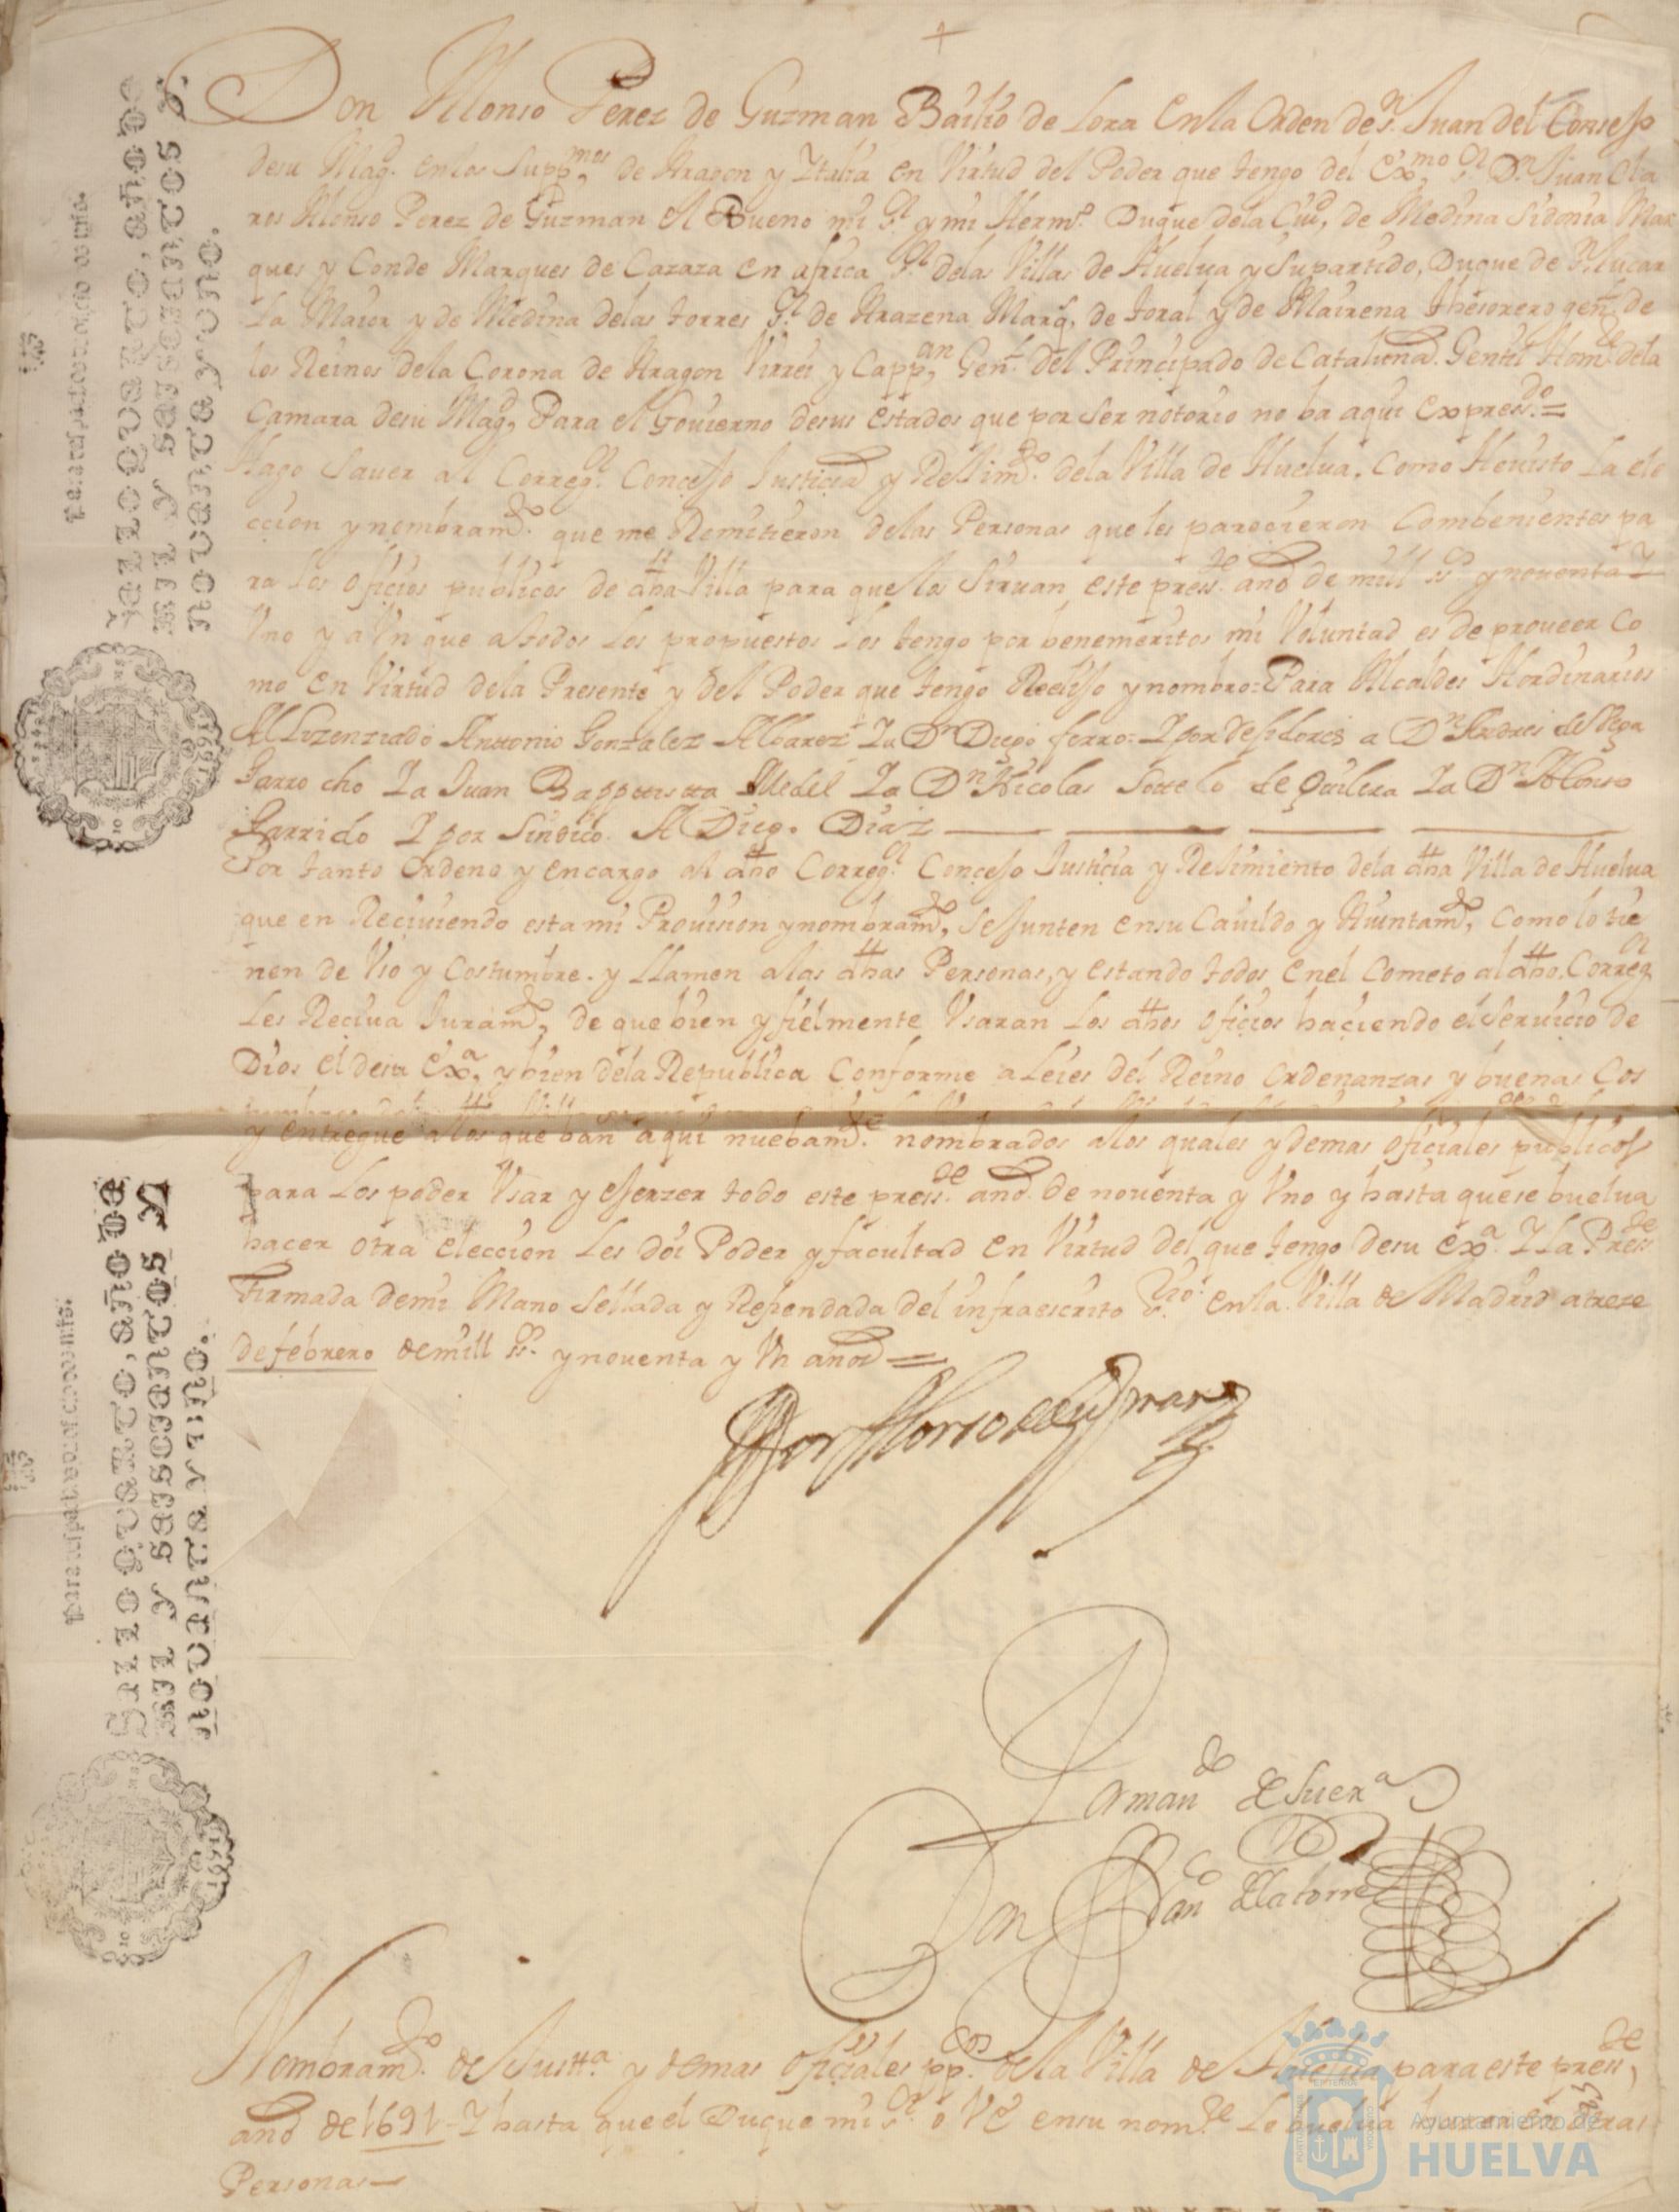 +
Don Alonso Perez de Guzman Bailio de Lora en la Orden de Sn. Juan del Consejo
de su Magd. en los Suppmos, de Aragon y Ytalia en Virtud del Poder que tengo del exmo. Sr. Dn. Juan Cla
ros Alonso Perez de Guzman el Bueno mi Sr. y mi Hermo. Duque de la Ciud, de Medina Sidonia Mar
ques y Conde Marques de Cazaza en africa Sr. de las Villas de Huelua y Supartido, Duque de Sn. lucar
La Maior y de Medina de las torres Sr. de Arazena Marqs. de toral y de Mairena thesorero genl. de
los Reinos de la Corona de Aragon Virrei y Cappan, Genl. del Principado de Cataluna. Gentil Home. de la
Camara de su Magd, Para el Gouierno de sus estados que por ser notorio no ba aqui expresdo. =
Hago Sauer al Corregr. Concejo Justicia y Rejimto. de la Villa de Huelua. Como He uisto La ele
ccion y nombramto. que me Remitieron de las Personas que les parecieron Combenientes pa
ra los oficios publicos de dha Villa para que los Siruan este preste. año de mill ss. y nouenta y
Vno y aVn que a todos Los propuestos Los tengo por benemeritos mi Voluntad es de proueer Co
mo en Virtud de la Presente y del Poder que tengo y nombro: Para Alcaldes Hordinarios
Al Lizenziado Anttonio Gonzalez Albarez Ya Dn Diego ferro: Y por Rejidores a Dn Andres de Vega
Garrocho Ya Juan Bapptistta Medel Ya Dn Nicolas Sottelo de Ya Dn Alonso
Garrido Y por Sindico. A Diego Diaz
Por tanto ordeno y encargo al dho Corregr. Concejo Justicia y Rejimiento de la dha Villa de Huelua
que en Reciuiendo esta mi Prouision y nombramto, se Junten en su Cauildo y Aiuntamto, Como lo tie
nen de Vso y Costumbre. y LLamen a las dhas Personas, y estando todos en el Cometo al dho. Corregr
Les Reciua Juramto, de que bien y fielmente Vsaran Los dhos oficios haciendo el seruicio de
Dios el de su exa, y bien de la Republica Conforme a Leies del Reino ordenanzas y buenas Cos
y entregue a los que ban aqui nuebamte. nombrados a los quales y demas oficiales publicos
para Los poder Vsar y ejerzer todo este preste año. de nouenta y Vno y hasta que se buelua
hacer otra eleccion Les doi Poder y facultad en Virtud del que tengo de su exa. Y la Preste
firmada de mi Mano Sellada y Refrendada del infraescrito en la Villa de Madrid a treze
de febrero de mill ss. y nouenta y Vn años =
Don Alonso de Guzman
Por mando de Su exa
Don Franco de la torre
Nombramto. de Justta. y demas oficiales ppcos. de la Villa de Huelua para este preste,
año de 1691 - Y hasta que el Duque mi sr. o VE en su nome. Lo buelua hazer en otras
Personas
Sello quarto, año de
mil y seiscientos y
nouenta y uno.
Sello quarto, año de
mil y seiscientos y
nouenta y uno.
1691
1691
Ayuntamiento de
HUELVA